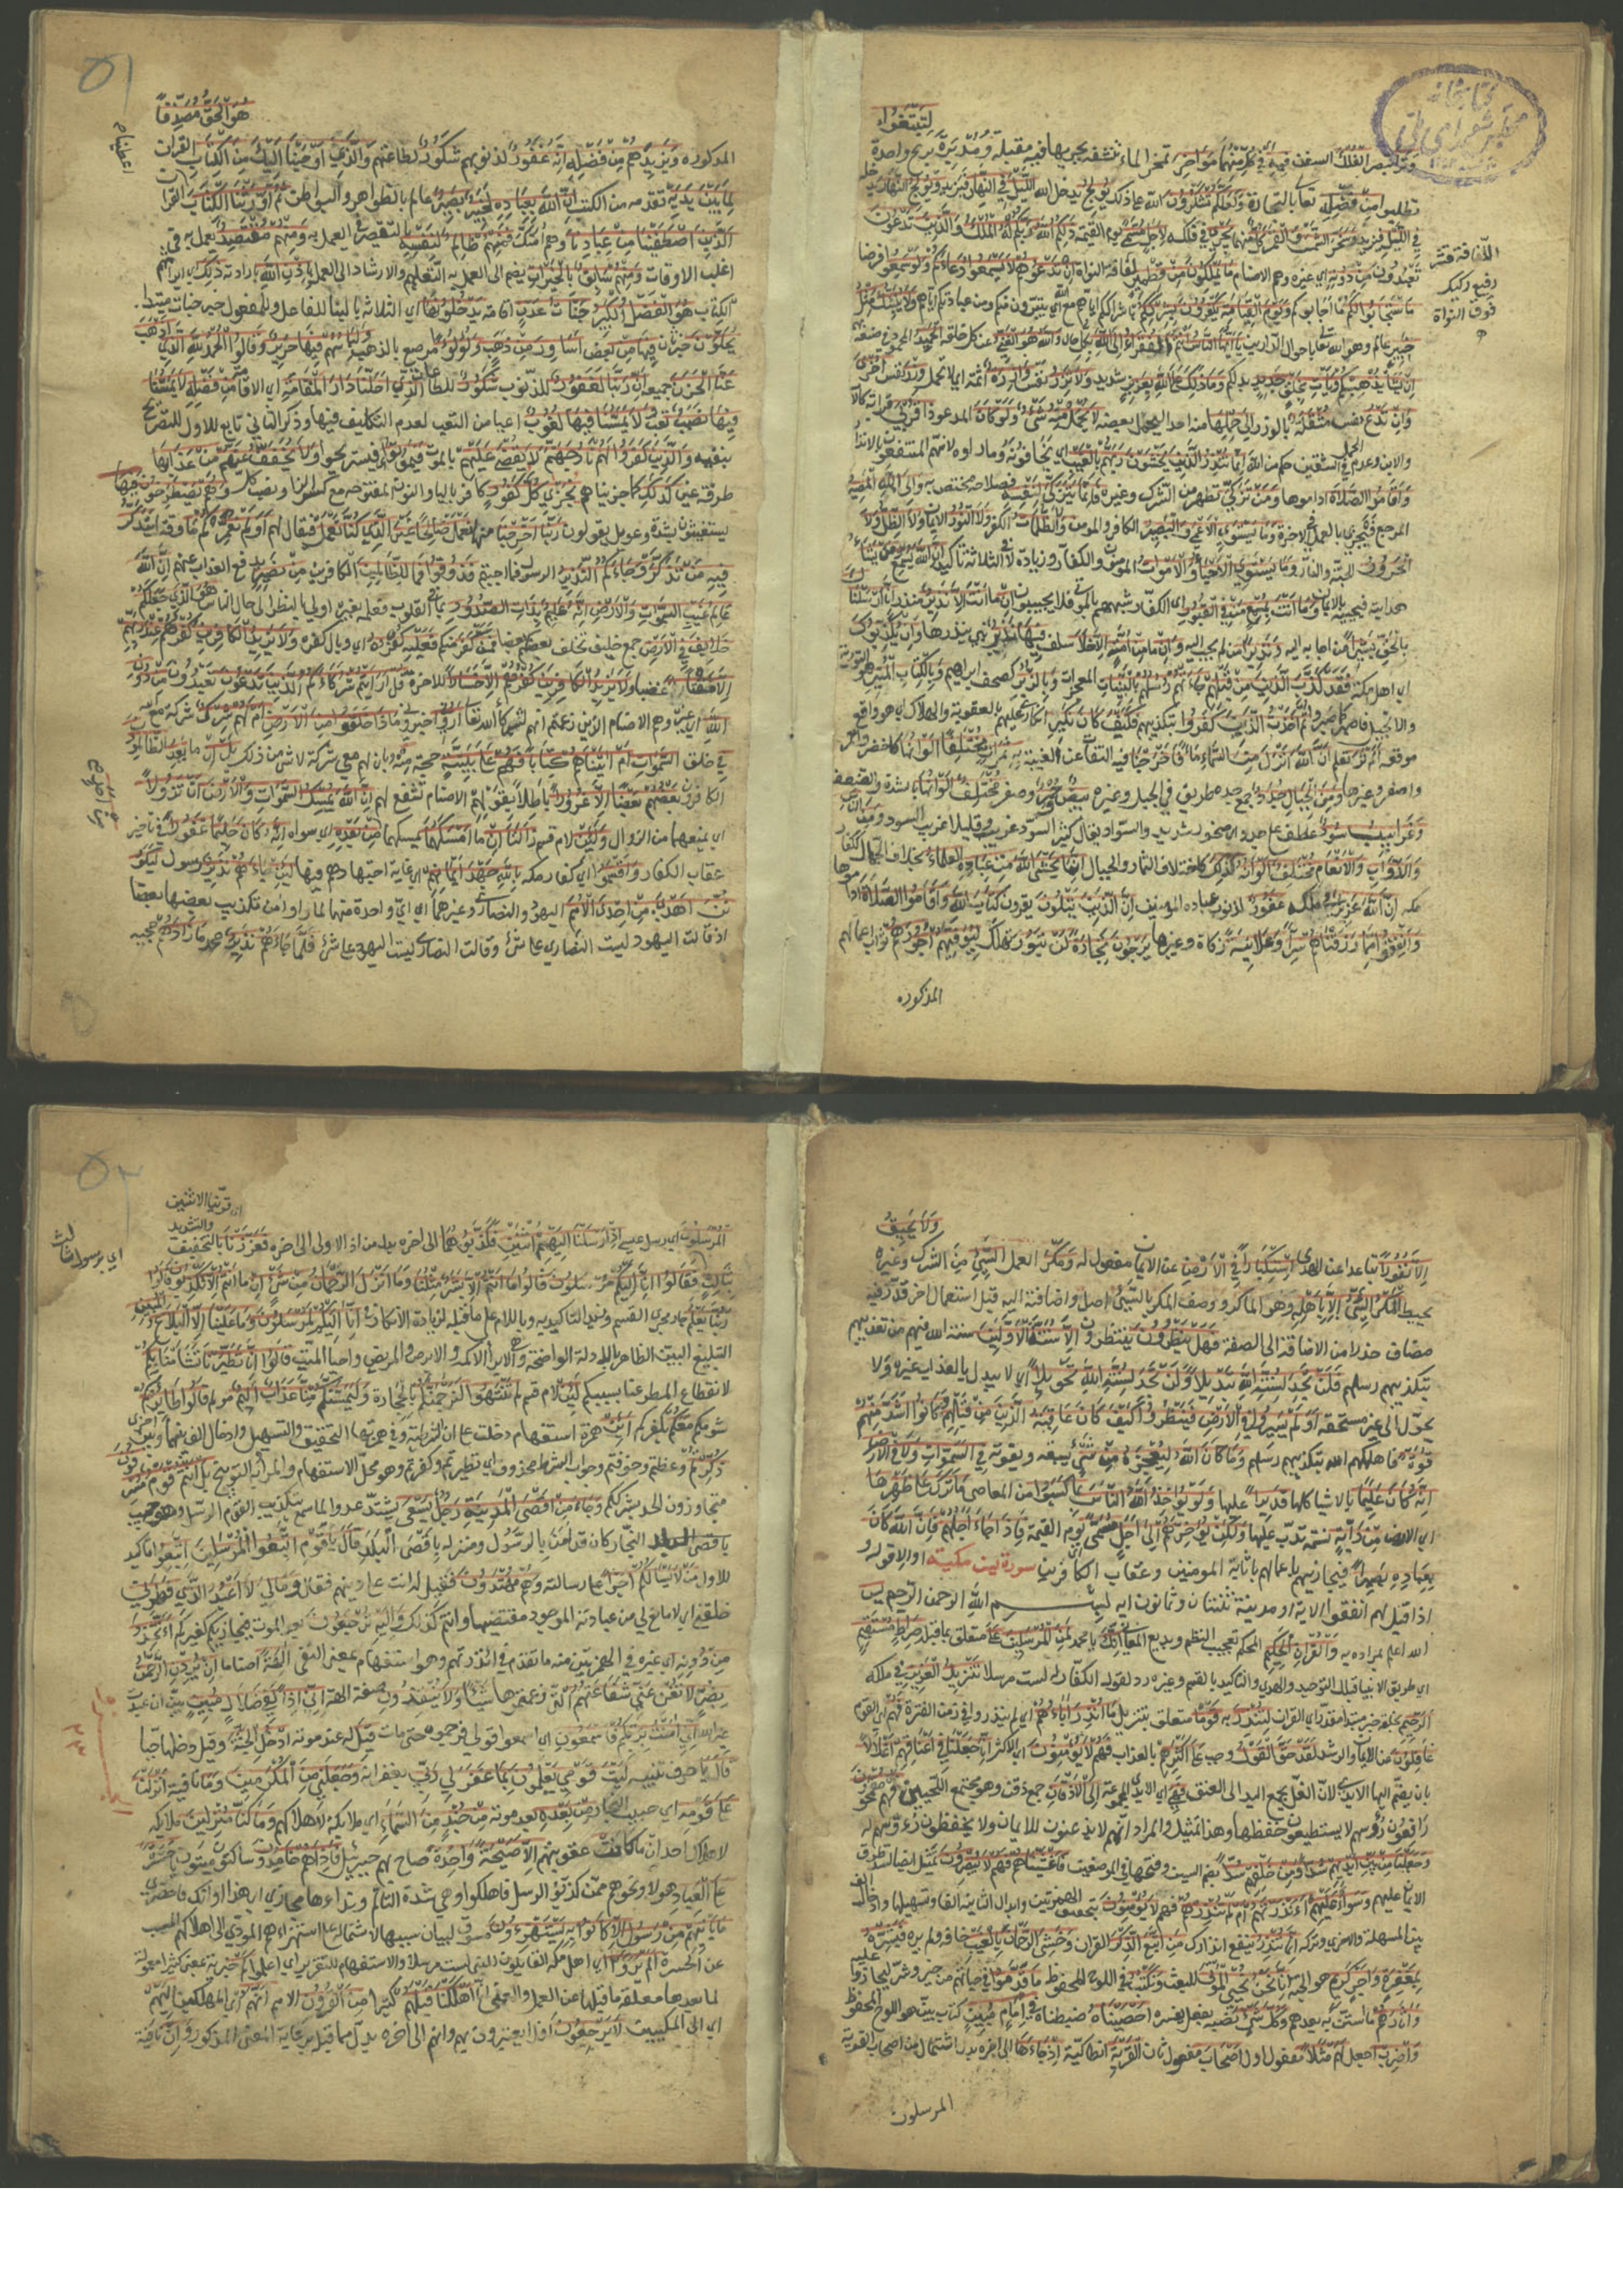 لتبتغوا
وتر تبصر الفلك السفن فيه في كل منهما مواخر تمخر الماء تشقه بجريها فيه مقبلة ومدبرة بريح واحدة
تطلبوا من فضله تعالى بالتجارة ولعلكم تشكرون الله على ذلك يولج يدخل الله الليل في النهار فيزيد ويولج النهار يدخله
في الليل فيزيد وسخر الشمس والقمر كل منهما يجري في فلكه لاجل مسمى يوم القيمة ذلكم الله ربكم له الملك والذين تدعون
تعبدون من دونه اي غيره وهم الاصنام ما يملكون من قطمير لفافة النواة ان تدعوهم لا يسمعوا دعاءكم ولو سمعوا فرضا
ما استجابوا لكم ما اجابوكم ويوم القيامة يكفرون بشرككم باشراككم اياهم مع الله اي يتبرون منكم ومن عبادتكم اياهم ولا ينبئك مثل
خبير عالم وهو الله تعالى باحوال الدارين يا ايها الناس انتم الفقراء الى الله بكل حال والله هو الغني عن كل خلقه الحميد المحمود في صنعه بهم
ان يشأ يذهبكم ويأت بخلق جديد بدلكم وما ذلك على الله بعزيز شديد ولا تزر نفس وازرة اثمة اي لا تحمل وزر نفس اخرى
وان تدع نفس مثقلة بالوزر الى حملها منه احدا ليحمل بعضه لا يحمل منه شيء ولو كان المدعو ذا قربى قرابة كالاب
والابن وعدم الحمل في الشقين حكم من الله انما تنذر الذين يخشون ربهم بالغيب اي يخافونه وما راوه لانهم المنتفعون بالانذار
واقاموا الصلاة اداموها ومن تزكى تطهر من الشرك وغيره فانما يتزكى لنفسه فصلاحه مختص به والى الله المصير
المرجع فيجزي بالعمل في الاخرة وما يستوي الاعمى والبصير الكافر والمومن ولا الظلمات الكفر ولا النور الايمان ولا الظل ولا
الحرور الجنة والنار وما يستوي الاحياء ولا الاموات المومنون والكفار وزيادة لا في الثلاثة تاكيد ان الله يسمع من يشاء
هدايته فيجيبه بالايمان وما انت بمسمع من في القبور اي الكفار شبههم بالموتى فلا يجيبون ان ما انت الا نذير منذر انا ارسلناك
بالحق بشيرا من اجابه اليه ونذيرا من لم يجب اليه وان ما من امة الا خلا سلف فيها نذير نبي ينذرها وان يكذبوك
اي اهل مكة فقد كذب الذين من قبلهم جاءتهم رسلهم بالبينات المعجزات وبالزبر كصحف ابراهيم وبالكتاب المنير هو التورية
والانجيل فاصبر كما صبروا ثم اخذت الذين كفروا بتكذيبهم فكيف كان نكير انكاري عليهم بالعقوبة والهلاك اي هو واقع
موقعه الم تر تعلم ان الله انزل من السماء ماء فاخرجنا فيه التفات عن الغيبة به ثمرات مختلفا الوانها كاخضر واحمر
واصفر وغيرها ومن الجبال جدد جمع جدة طريق في الجبل وغيره بيض وحمر وصفر مختلف الوانها بالشدة والضعف
وغرابيب سود عطف على جدد اي صخور شديدة السواد يقال كثيرا اسود غربيب وقليلا غربيب اسود ومن الناس
والدواب والانعام مختلف الوانه كذلك كاختلاف الثمار والجبال انما يخشى الله من عباده العلماء بخلاف الجهال ككفار
مكة ان الله عزيز في ملكه غفور لذنوب عباده المومنين ان الذين يتلون يقرون كتاب الله واقاموا الصلاة اداموها
وانفقوا مما رزقناهم سرا وعلانية زكاة وغيرها يرجون تجارة لن تبور تهلك ليوفيهم اجورهم ثواب اعمالهم
المذكورة
اللفافة قشر
رقيق ركيك
فوق النواة
كتابخانه
مجلس شورای ملی
۵۱
هو الحق مصدقا
المذكورة ويزيدهم من فضله انه غفور لذنوبهم شكور لطاعتهم والذي اوحينا اليك من الكتاب القران
لما بين يديه تقدمه من الكتب ان الله بعباده لخبير بصير عالم بالظواهر والبواطن ثم اورثنا الكتاب القران
الذين اصطفينا من عبادنا وهم امتك فمنهم ظالم لنفسه بالتقصير في العمل به ومنهم مقتصد يعمل به في
اغلب الاوقات ومنهم سابق بالخيرات يضم الى العمل به التعليم والارشاد الى العمل باذن الله بارادته ذلك اي ايراثهم
الكتاب هو الفضل الكبير جنات عدن اقامة يدخلونها اي الثلاثة بالبناء للفاعل وللمفعول خبر جنات مبتدا
يحلون خبر ثان فيها من بعض اساور من ذهب ولؤلؤا مرصع بالذهب ولباسهم فيها حرير وقالوا الحمد لله الذي اذهب
عنا الحزن جميعه ان ربنا لغفور للذنوب شكور للطاعات الذي احلنا دار المقامة اي الاقامة من فضله لا يمسنا
فيها نصب تعب ولا يمسنا فيها لغوب اعياء من التعب لعدم التكليف فيها وذكر الثاني تابع للاول للتصريح
بنفيه والذين كفروا لهم نار جهنم لا يقضى عليهم بالموت فيموتوا فيستريحوا ولا يخفف عنهم من عذابها
طرفة عين كذلك كما جزيناهم نجزي كل كفور كافر بالياء والنون المفتوحة مع كسر الزا ونصب كل وهم يصطرخون فيها
يستغيثون بشدة وعويل يقولون ربنا اخرجنا منها نعمل صالحا غير الذي كنا نعمل فيقال لهم اولم نعمركم ما وقتا يتذكر
فيه من تذكر وجاءكم النذير الرسول فما اجبتم فذوقوا فما للظالمين الكافرين من نصير يدفع العذاب عنهم ان الله
عالم غيب السموات والارض انه عليم بذات الصدور بما في القلوب فعلمه بغيره اولى بالنظر الى حال الناس هو الذي جعلكم
خلائف في الارض جمع خليفة يخلف بعضكم بعضا فمن كفر منكم فعليه كفره اي وبال كفره ولا يزيد الكافرين كفرهم عند ربهم
الا مقتا غضبا ولا يزيد الكافرين كفرهم الا خسارا للاخرة قل ارايتم شركاءكم الذين تدعون تعبدون من دون
الله اي غيره وهم الاصنام الذين زعمتم انهم شركاء الله تعالى اروني اخبروني ماذا خلقوا من الارض ام لهم شرك شركة مع الله
في خلق السموات ام اتيناهم كتابا فهم على بينة حجة منه بان لهم معي شركة لا شي من ذلك بل ان ما يعد الظالمون
الكافرون بعضهم بعضا الا غرورا باطلا بقولهم الاصنام تشفع لهم ان الله يمسك السموات والارض ان تزولا
اي يمنعهما من الزوال ولئن لام قسم زالتا ان ما امسكهما يمسكهما من بعده اي سواه انه كان حليما غفورا في تاخير
عقاب الكفار واقسموا اي كفار مكة بالله جهد ايمانهم اي غاية اجتهادهم فيها لئن جاءهم نذير رسول ليكونن
اهدى من احدى الامم اليهود والنصارى وغيرهما اي اي واحدة منها لما راوا من تكذيب بعضها بعضا
اذ قالت اليهود ليست النصاري على شي وقالت النصارى ليست اليهود على شي فلما جاءهم نذير محمد ما زادهم مجيئه
ولا يحيق
الا نفورا تباعدا عن الهدى استكبارا في الارض عن الايمان مفعول له ومكر العمل السيئ من الشرك وغيره
يحيط المكر السيئ الا باهله وهو الماكر ووصف المكر بالسيئ اصل واضافته اليه قبل استعمال اخر قدر فيه
مضاف حذرا من الاضافة الى الصفة فهل ينظرون ينتظرون الا سنة الاولين سنة الله فيهم من تعذيبهم
بتكذيبهم رسلهم فلن تجد لسنة الله تبديلا ولن تجد لسنة الله تحويلا اي لا يبدل بالعذاب غيره ولا
يحول الى غير مستحقه اولم يسيروا في الارض فينظروا كيف كان عاقبة الذين من قبلهم وكانوا اشد منهم
قوة فاهلكهم الله بتكذيبهم رسلهم وما كان الله ليعجزه من شيء يسبقه ويفوته في السموات ولا في الارض
انه كان عليما بالاشياء كلها قديرا عليها ولو يؤاخذ الله الناس بما كسبوا من المعاصي ما ترك على ظهرها
اي الارض من دابة نسمة تدب عليها ولكن يؤخرهم الى اجل مسمى يوم القيمة فاذا جاء اجلهم فان الله كان
بعباده بصيرا فيجازيهم باعمالهم باثابة المومنين وعقاب الكافرين سورة يس مكية او الا قوله و
اذا قيل لهم انفقوا الاية او مدينة ثنتان وثمانون اية بسم الله الرحمن الرحيم يس
الله اعلم بمراده به والقران الحكيم المحكم بعجيب النظم وبديع المعاني انك يا محمد لمن المرسلين على متعلق بما قبله صراط مستقيم
اي طريق الانبياء قبلك التوحيد والهدى والتاكيد بالقسم وغيره رد لقول الكفار له لست مرسلا تنزيل العزيز في ملكه
الرحيم بخلقه خبر مبتدا مقدر اي القران لتنذر به قوما متعلق بتنزيل ما انذر اباؤهم اي لم ينذروا في زمن الفترة فهم اي القوم
غافلون عن الايمان والرشد لقد حق القول وجب على اكثرهم بالعذاب فهم لا يؤمنون اي الاكثر انا جعلنا في اعناقهم اغلالا
بان يضم اليها الايدي لان الغل يجمع اليد الى العنق فهي اي الايدي مجموعة الى الاذقان جمع ذقن وهو مجتمع اللحيين فهم مقمحون
رافعون رؤسهم لا يستطيعون خفضها وهذا تمثيل والمراد انهم لا يذعنون للايمان ولا يخفظون رؤسهم له
وجعلنا من بين ايديهم سدا ومن خلفهم سدا بضم السين وفتحها في الموضعين فاغشيناهم فهم لا يبصرون تمثيل ايضا لسد طرق
الايمان عليهم وسواء عليهم ءانذرتهم ام لم تنذرهم فهم لا يؤمنون بتحقيق الهمزتين وابدال الثانية الفا وتسهيلها وادخال الف
بين المسهلة والاخرى وتركه انما تنذر ينفع انذارك من اتبع الذكر القران وخشي الرحمان بالغيب خافه ولم يره فبشره
بمغفرة واجر كريم هو الجنة انا نحن نحيي الموتى للبعث ونكتب في اللوح المحفوظ ما قدموا في حياتهم من خير وشر ليجازوا عليه
واثارهم ما استن به بعدهم وكل شيء نصبه بفعل يفسره احصيناه ضبطناه في امام مبين كتاب بين هو اللوح المحفوظ
واضرب اجعل لهم مثلا مفعول اول اصحاب مفعول ثان القرية انطاكية اذ جاءها الى اخره بدل اشتمال من اصحاب القرية
المرسلون
۵۲
اي قوينا الاثنين
والتشديد
المرسلون اي رسل عيسى اذ ارسلنا اليهم اثنين فكذبوهما الى اخره بدل من اذ الاولى الى اخره فعززنا بالتخفيف
بثالث فقالوا انا اليكم مرسلون قالوا ما انتم الا بشر مثلنا وما انزل الرحمان من شيء ان ما انتم الا تكذبون قالوا
ربنا يعلم جار مجرى القسم وزيد التاكيد به وباللام على ما قبله لزيادة الانكار في انا اليكم لمرسلون وما علينا الا البلاغ المبين
التبليغ البين الظاهر بالادلة الواضحة وهي ابراء الاكمه والابرص والمريض واحياء الميت قالوا انا تطيرنا تشاءمنا بكم
لانقطاع المطر عنا بسببكم لئن لام قسم لم تنتهوا لنرجمنكم بالحجارة وليمسنكم منا عذاب اليم مولم قالوا طائركم
شومكم معكم بكفركم ائن همزة استفهام دخلت على ان الشرطية وفي همزتها التحقيق والتسهيل وادخال الف بينها وبين اخرى
ذكرتم وعظتم وخوفتم وجواب الشرط محذوف اي تطيرتم وكفرتم وهو محل الاستفهام والمراد به التوبيخ بل انتم قوم مسرفون
متجاوزون الحد بشرككم وجاء من اقصى المدينة رجل يسعى يشتد عدوا لما سمع بتكذيب القوم الرسل وهو حبيب
النجار كان قد امن بالرسول ومنزله باقصى البلد قال يا قوم اتبعوا المرسلين اتبعوا تاكيد
للاول من لا يسالكم اجرا على رسالته وهم مهتدون فقيل له انت على دينهم فقال وما لي لا اعبد الذي فطرني
خلقني اي لا مانع لي من عبادته الموجود مقتضيها وانتم كذلك واليه ترجعون بعد الموت فيجازيكم كغيركم ءاتخذ
من دونه اي غيره في الهمزتين منه ما تقدم في ءانذرتهم وهو استفهام بمعنى النفي الهة اصناما ان يردن الرحمن
بضر لا تغن عني شفاعتهم التي زعمتموها شيئا ولا ينقذون صفة الهة اني اذا لفي ضلال مبين بين ان عبدت
غير الله اني امنت بربكم فاسمعون اي اسمعوا قولي فرجموه حتى مات قيل له عند موته ادخل الجنة وقيل دخلها حيا
قال يا حرف تنبيه ليت قومي يعلمون بما غفر لي ربي بغفرانه وجعلني من المكرمين وما نافية انزلنا
على قومه اي حبيب النجار من بعده بعد موته من جند من السماء اي ملائكة لاهلاكهم وما كنا منزلين ملائكة
لاهلاك احد ان ما كانت عقوبتهم الا صيحة واحدة صاح بهم جبرئيل فاذا هم خامدون ساكنون ميتون يا حسرة
على العباد هولاء ونحوهم ممن كذبوا الرسل فاهلكوا وهي شدة التالم ونداءها مجازي اي هذا اوانك فاحضري
ما ياتيهم من رسول الا كانوا به يستهزءون مسوق لبيان سببها لاشتماله على استهزاءهم المودي الى اهلاكهم المسبب
عن الحسرة الم يروا اي اهل مكة القائلون للنبي لست مرسلا والاستفهام للتقرير اي اعلموا كم خبرية بمعنى كثيرا معمولة
لما بعدها معلقة ما قبلها عن العمل والمعنى انا اهلكنا قبلهم كثيرا من القرون الامم انهم اي المهلكين اليهم
اي الى المكيين لا يرجعون افلا يعتبرون بهم وانهم الى اخره بدل مما قبله برعاية المعنى المذكور وان نافية
اي برسول ثالث